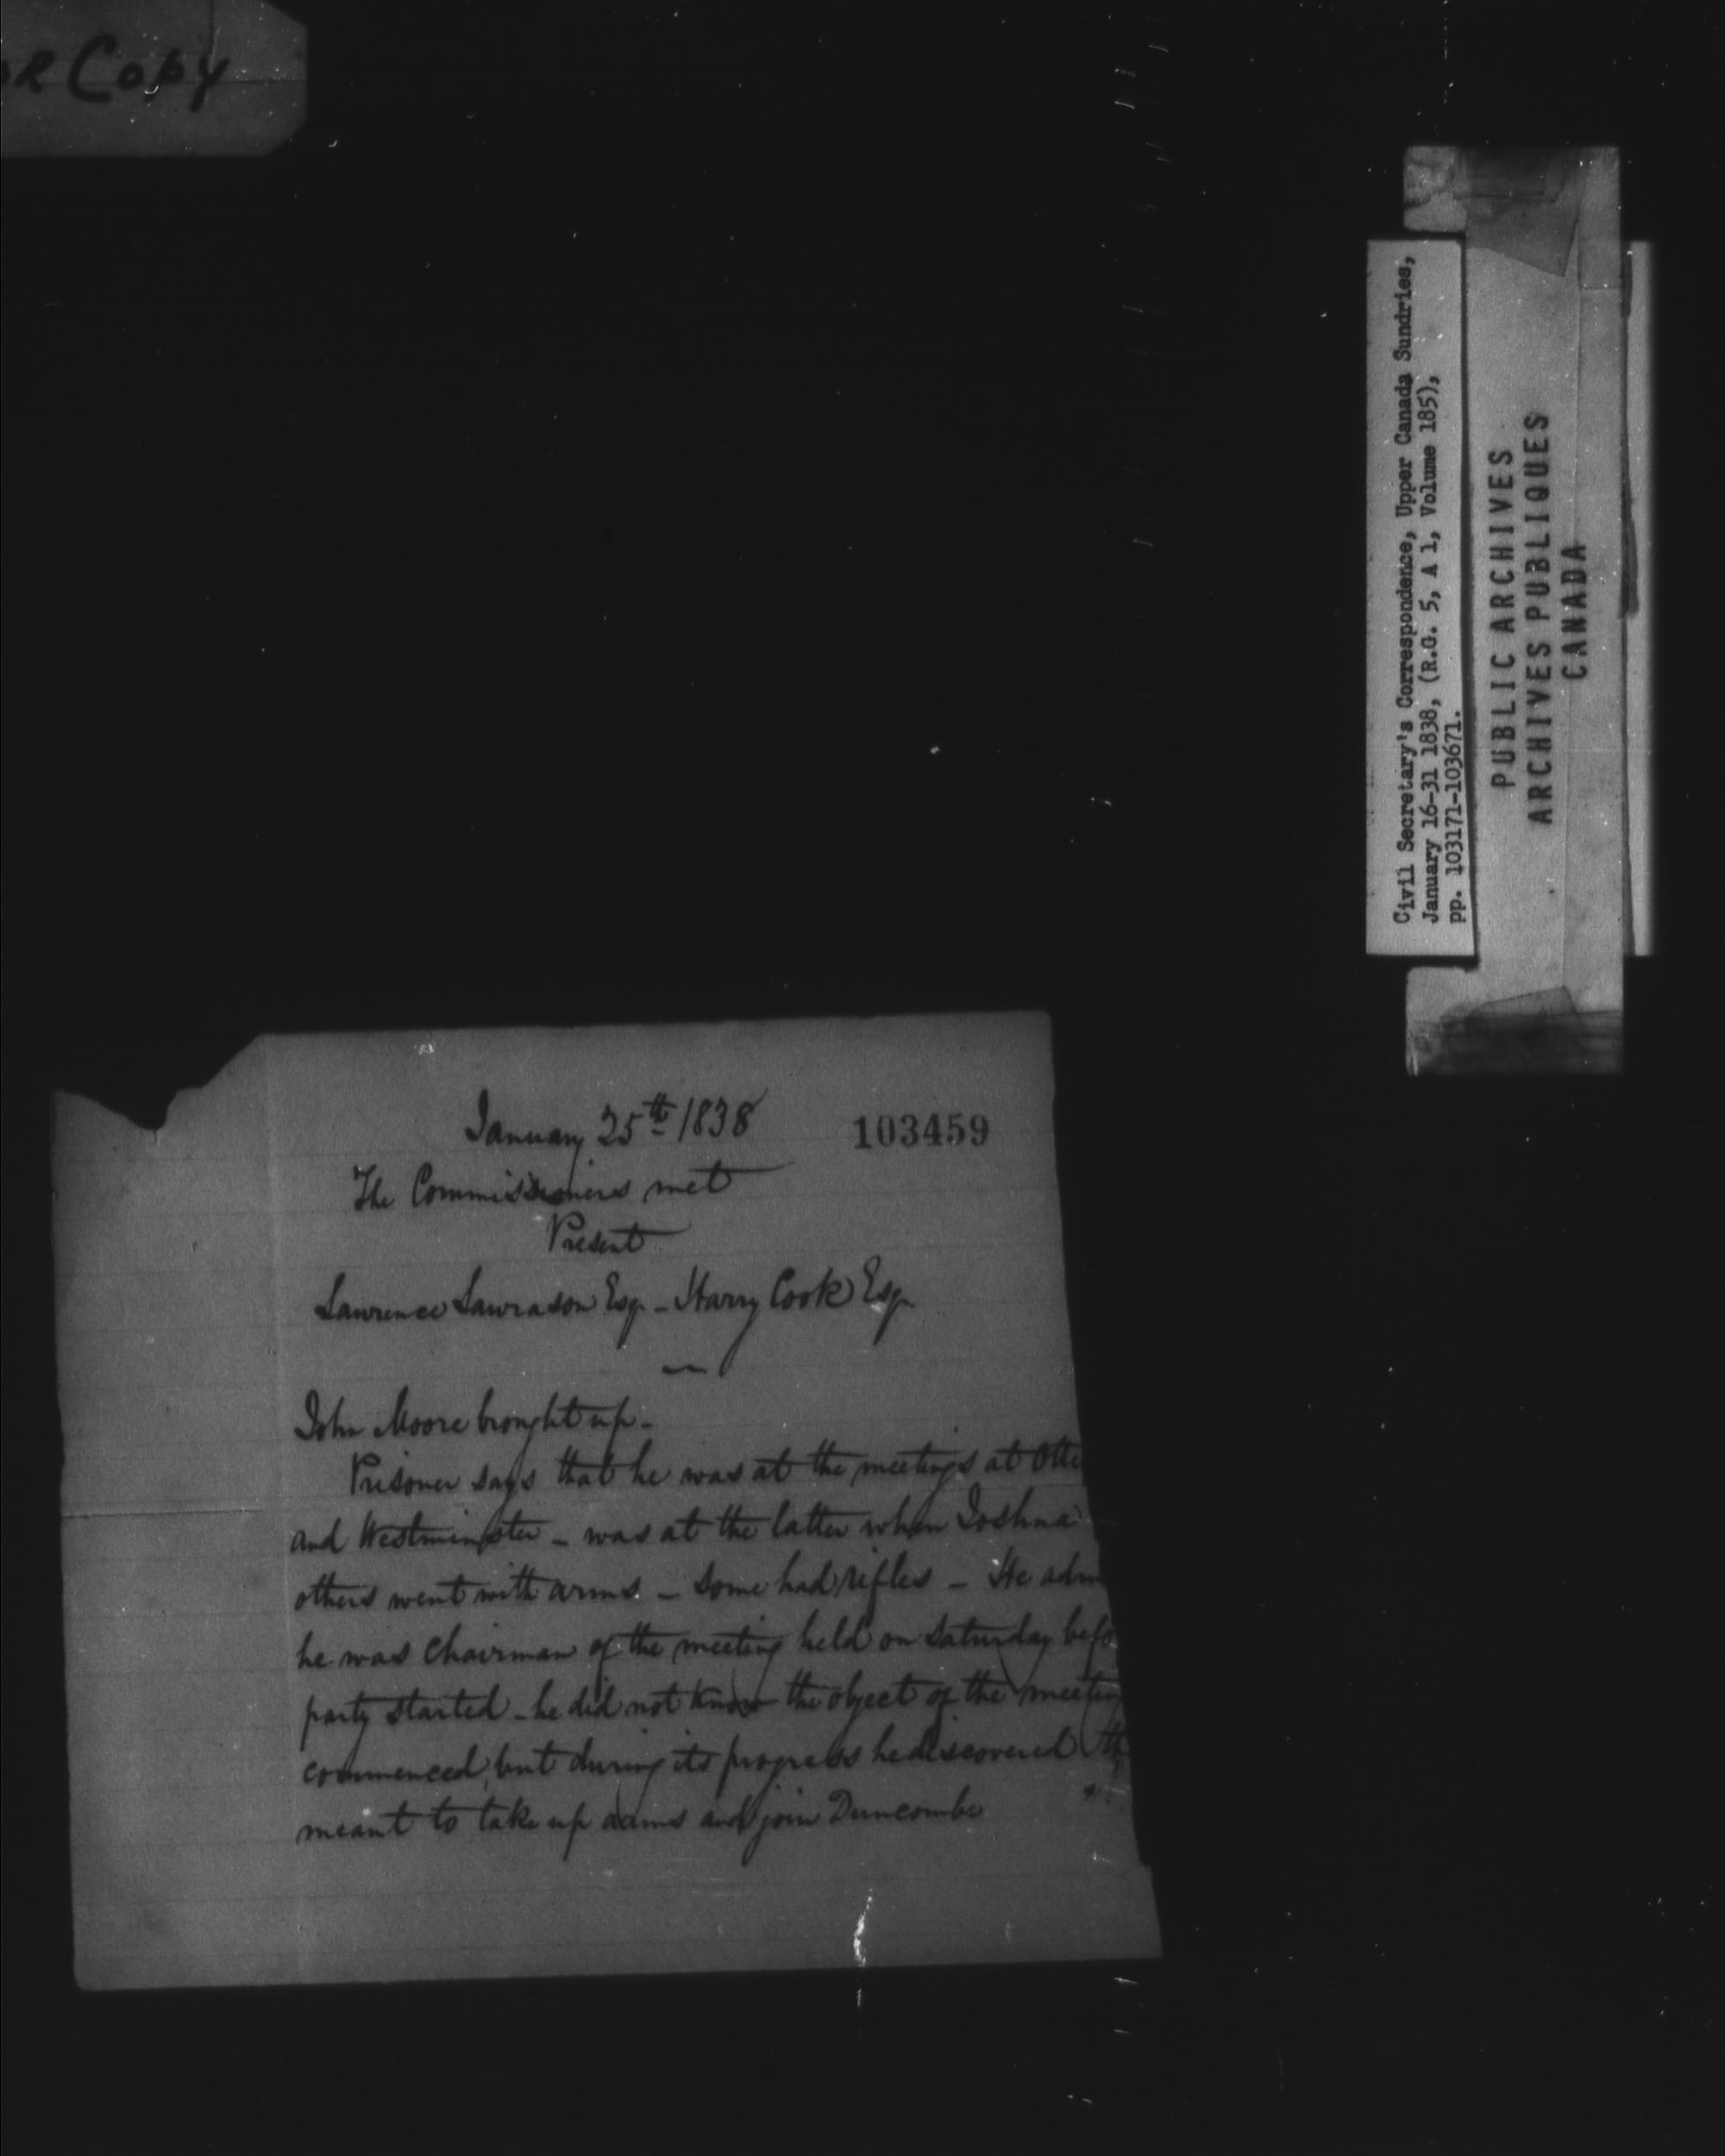 OR Copy
Civil Secretary's Correspondence, Upper Canada Sundries,
January 16-31 1838, (R.G. 5, A 1, Volume 185),
pp. 103171-103671.
PUBLIC ARCHIVES
ARCHIVES PUBLIQUES
CANADA
January 25th 1838
103459
The Commissioners met
Present
Lawrence Lawrason Esq - Harry Cook Esq
John Moore brought up -
Prisoner says that he was at the meetings at Otte
and Westminster - was at the latter when Joshua
others went with arms - some had rifles - He adm
he was Chairman of the meeting held on Saturday befo
party started - he did not know the object of the meeting
commenced, but during its progress he discovered th
meant to take up arms and join Duncombe